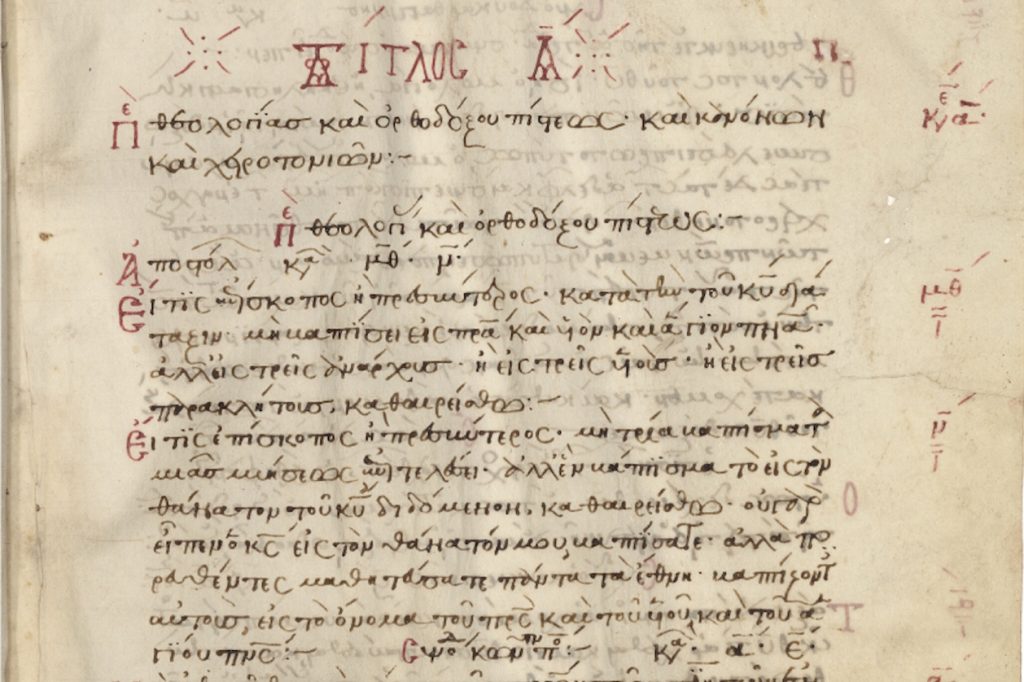 ΤΙΤΛΟΣ Α
Περὶ θεολογίας καὶ ὀρθοδόξου πίστεως· καὶ κανόνων
καὶ χειροτονιῶν:-
Περὶ θεολογίας καὶ ὀρθοδόξου πίστεως:-
Ἀποστόλ κα μθ ν
Εἴ τις ἐπίσκοπος ἢ πρεσβύτερος· κατὰ τὴν τοῦ κυ διά
ταξιν μὴ βαπτίσει εἰς πρα καὶ υἱὸν καὶ ἅγιον πνα·
ἀλλ' εἰς τρεῖς ἀνάρχους· ἢ εἰς τρεῖς υἱοὺς· ἢ εἰς τρεῖς
παρακλήτους, καθαιρείσθω:-
Εἴ τις ἐπίσκοπος ἢ πρεσβύτερος· μὴ τρία βαπτίσματ
μιᾶς μυήσεως ἐπιτελέσει· ἀλλ' ἓν βάπτισμα τὸ εἰς τὸν
θάνατον τοῦ κυ διδόμενον, καθαιρείσθω· οὐ γὰρ
εἶπεν ὁ κς εἰς τὸν θάνατόν μου βαπτίσατε· ἀλλὰ πο
ρευθέντες μαθητεύσατε πάντα τὰ ἔθνη· βαπτίζοντ
αὐτοὺς, εἰς τὸ ὄνομα τοῦ πρς καὶ τοῦ υἱοῦ, καὶ τοῦ ἁ
γίου πνς:-
κα
μθ
ν